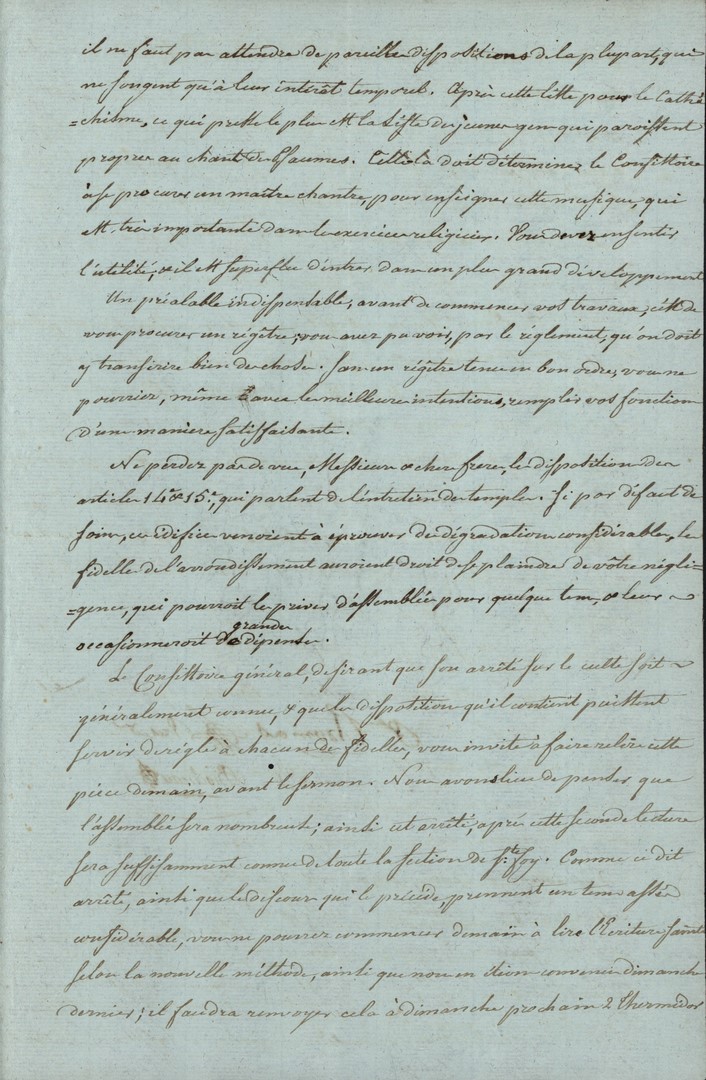 il ne faut pas attendre de pareilles dispositions de la plupart, qui
ne songent qu'à leur intérêt temporel. Après cette liste pour le Cathé
=chisme, ce qui presse le plus est la liste des jeunes gens qui paroissent
propres au chant des Psaumes. Celle là doit déterminer le Consistoire
à se procurer un maître chantre, pour enseigner cette musique, qui
est très importante dans les exercices religieux. Vous devez en sentir
l'utilité, & il est superflu d'entrer dans un plus grand développement
Un préalable indispensable, avant de commencer vos travaux, c'est de
vous procurer un régître; vous avez pu voir, par le réglement, qu'on doit
y transcrire bien des choses. Sans un régître tenu en bon ordre, vous ne
pourriez, même avec les meilleures intentions, remplir vos fonctions
d'une maniere satisfaisante.
Ne perdez pas de vue, Messieurs & chers freres, les dispositions des
articles 14e & 15e, qui parlent de l'entretien des temples. Si par défaut de
soins, ces édifices venoient à éprouver des dégradations considérables, les
fidelles de l'arrondissement auroient droit de se plaindre de vôtre négli=
=gence, qui pourroit les priver d'assemblées pour quelque tems, & leur
occasionneroit de grandes dépenses.
Le Consistoire général, desirant que son arrêté sur le culte soit
généralement connu, & que les dispositions qu'il contient puissent
servir de régle à chacun des fidelles, vous invite à faire relire cette
piéce demain, avant le sermon. Nous avons lieu de penser que
l'assemblée sera nombreuse; ainsi cet arrêté, après cette seconde lecture
sera suffisamment connu de toute la section de Ste. Foy. Comme ce dit
arrêté, ainsi que le discours qui le précéde, prennent un tems assés
considérable, vous ne pourrez commencer demain à lire l'Ecriture sainte
selon la nouvelle méthode, ainsi que nous en étions convenus dimanche
dernier; il faudra renvoyer cela à dimanche prochain 2 Thermidor